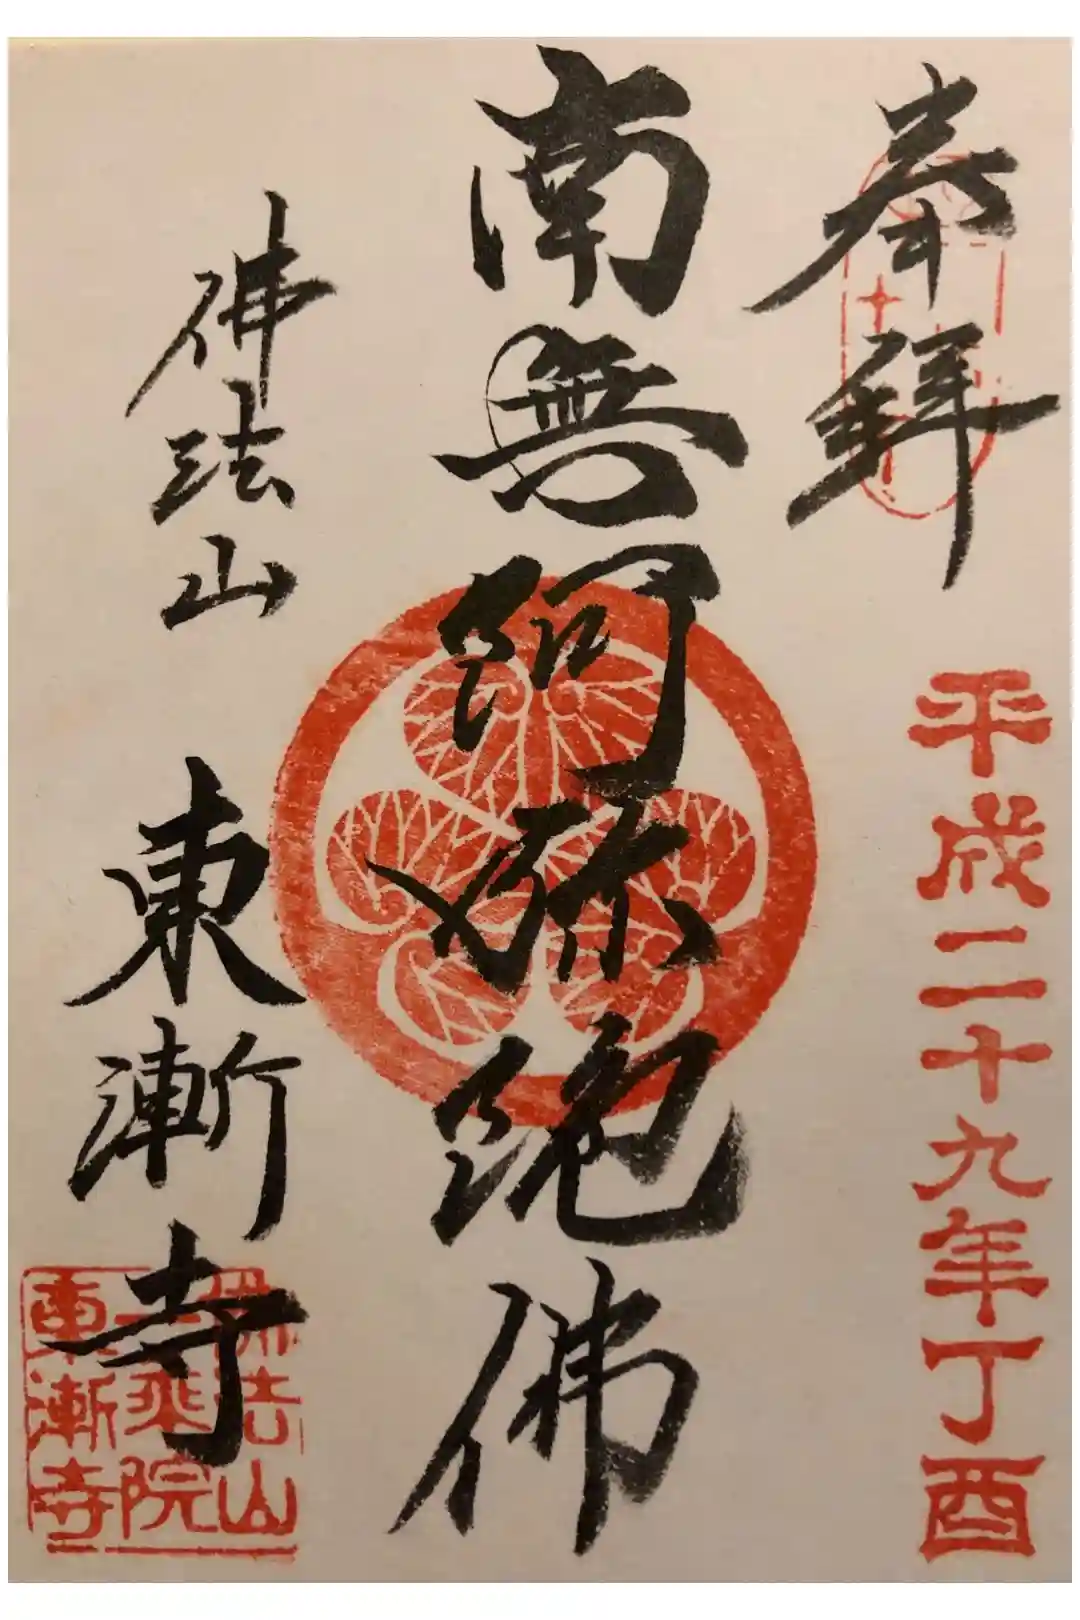 奉拜
平成二十九年丁酉
南無阿弥陀佛
佛法山
東漸寺
佛法山
一乗院
東漸寺